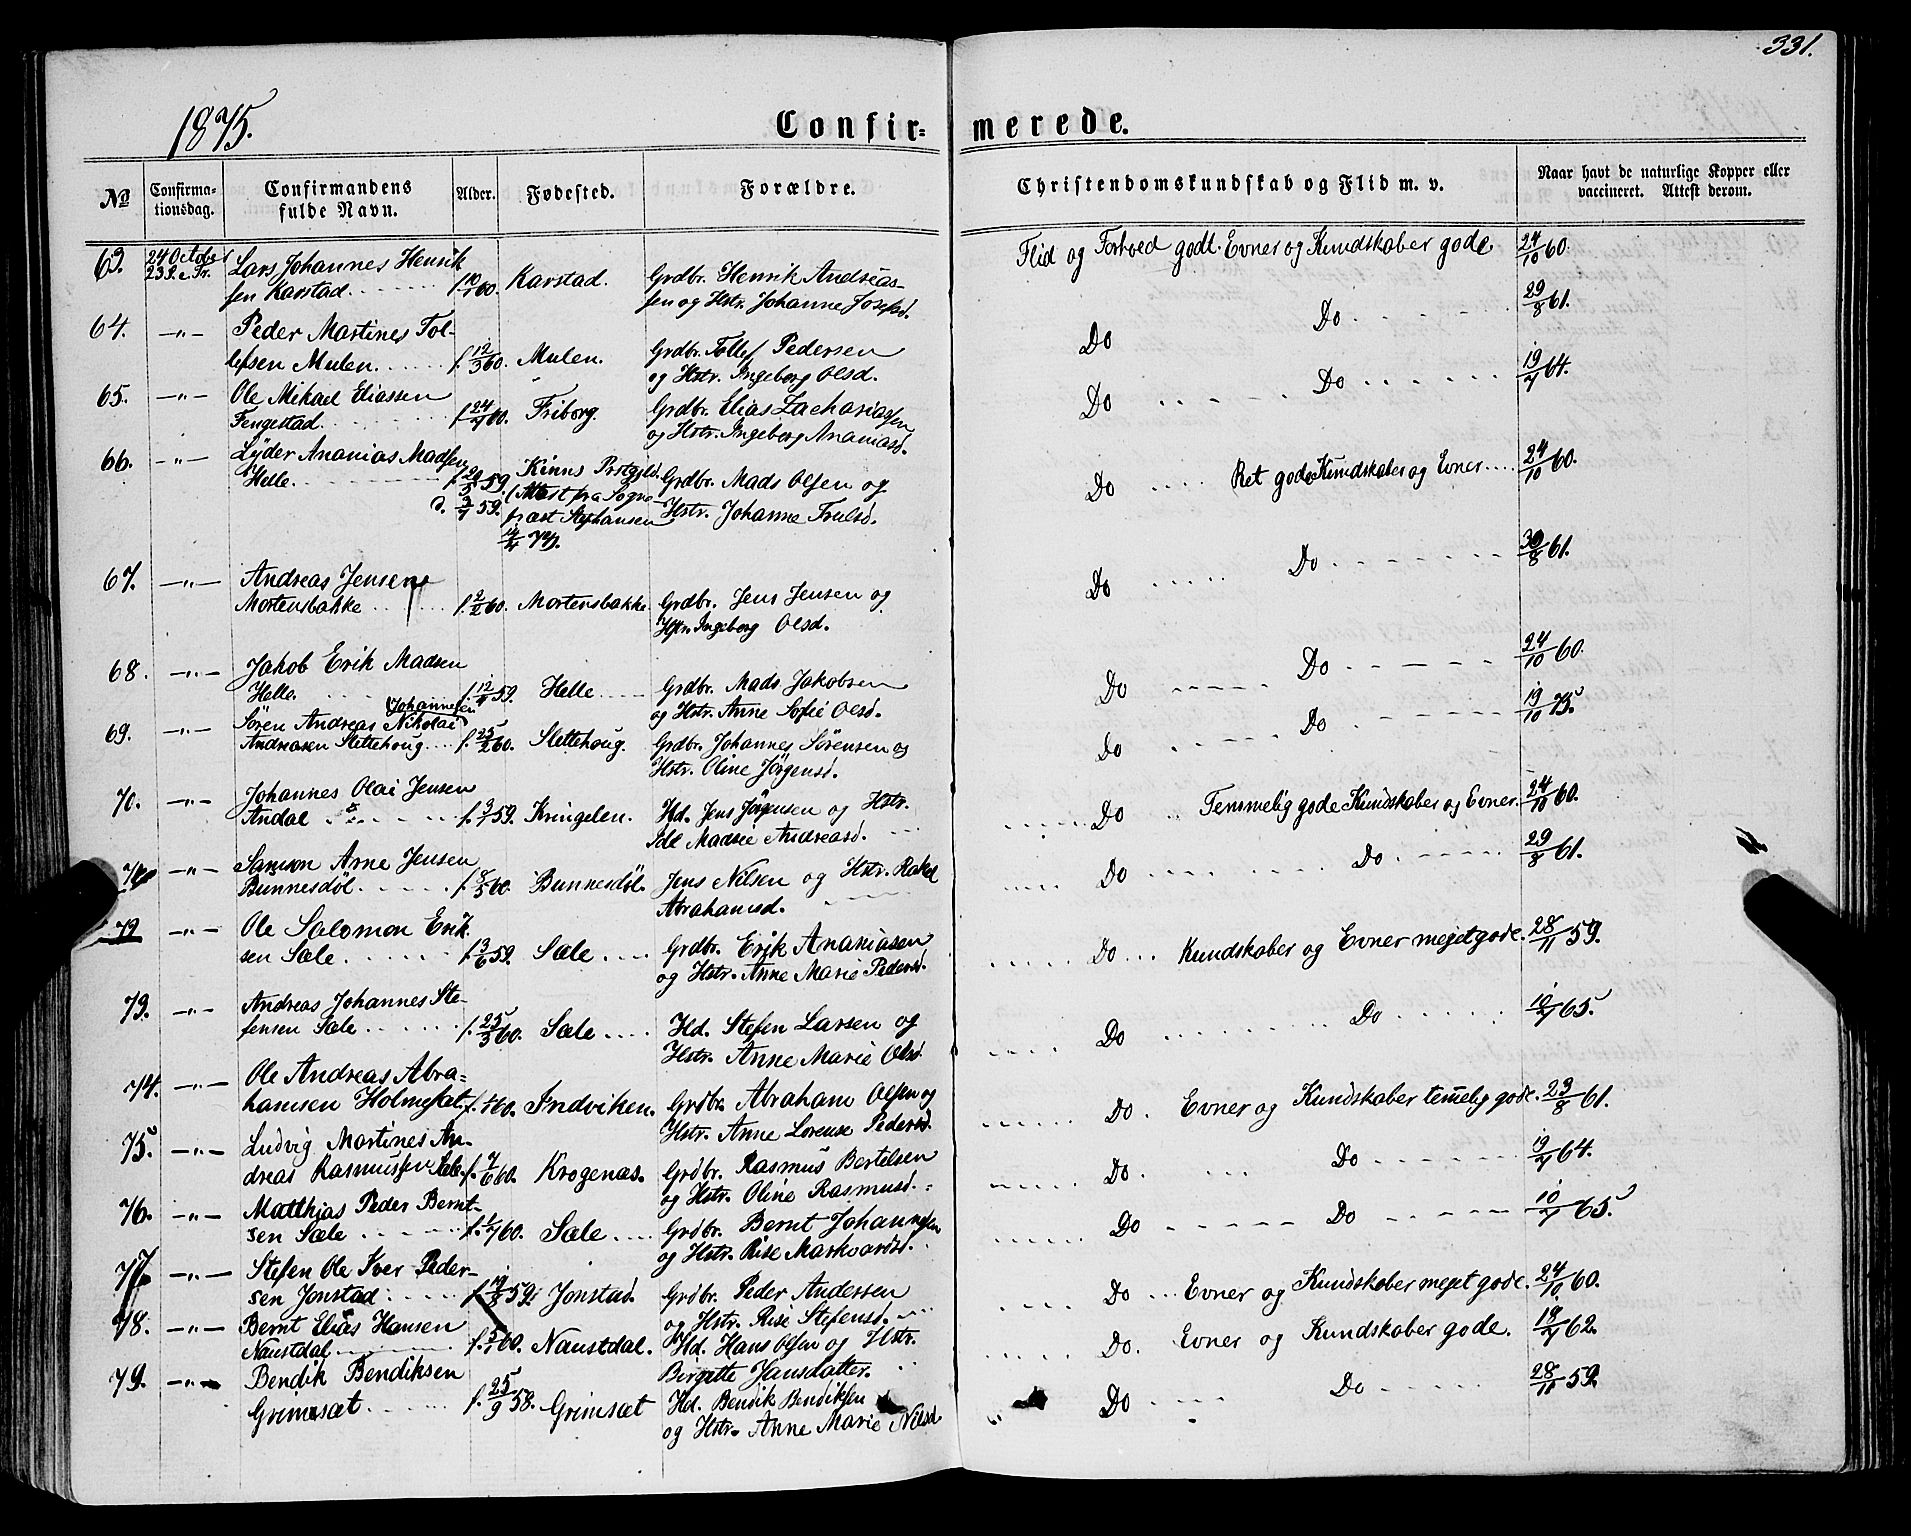 331.
1875.
Confir= merede.
No
Confirma-
tionsdag.
Confirmandens
fulde Navn.
Alder.
Fødested.
Forældre.
Christendomskundskab og Flid m. v.
Naar havt de naturlige Kopper eller
vaccineret. Attest derom.
63. 24 October Lars Johannes Henrik f. 10/1 60. Karstad. Grdbr. Henrik Andreas- Flid og Forhold godt. Evner og Kundskaber gode. 24/10 60.
23 S. e. Tr. sen Karstad. sen og Hstr. Johanne Josefsd.
64. -"- Peder Martines Tol- Grdbr. Tollef Pedersen Do Do 29/8 61.
lefsen Mulen. f. 12/3 60. Mulen. og Hstr. Ingeborg Olsd.
65. -"- Ole Mikael Eliassen Grdbr. Elias Zachariassen Do Do 19/7 64.
Fengestad. f. 24/7 60. Friborg. og Hstr. Ingeborg Ananiasd.
66. -"- Lyder Ananias Madsen Kinns Prstgjld. Grdbr. Mads Olsen og Do Ret gode Kundskaber og Evner 24/10 60.
Helle. 59. (Attest fra Sogne- Hstr. Johanne Trulsd.
d. 3/7 59. præst Stephansen
67. -"- Andreas Jensen Grdbr. Jens Jensen og Do Do 30/8 61.
Mortensbakke f. 2/2 60. Mortensbakke. Hstr. Ingeborg Olsd.
68. -"- Jakob Erik Madsen Grdbr. Mads Jakobsen Do Do 24/10 60.
Helle. f. 12/4 59. Helle og Hstr. Anne Sofie Olsd.
Johannesen
69. -"- Sören Andreas Nikolai Grdbr. Johannes Sörensen og Do Do 19/10 75.
Andreasen Slettehoug f. 25/2 60. Slettehoug. Hstr. Oline Jörgensd.
70. -"- Johannes Olai Jensen Hd. Jens Jörgensen og Hstr. Do Temmelig gode Kundskaber og Evner. 24/10 60.
Andal f. 3/7 59. Kringelen. Ide Madsie Andreasd.
71. -"- Samson Arne Jensen Jens Nilsen og Hstr. Rakel Do Do 29/8 61.
Bunnesdöl. f. 8/5 60. Bunnesdöl. Abrahamsd.
72 -"- Ole Salomon Erik- Grdbr. Erik Ananiasen Do Kundskaber og Evner meget gode. 28/11 59.
sen Sæle f. 13/6 59. Sæle og Hstr. Anne Marie Pedersd.
73. -"- Andreas Johannes Ste- Hd. Stefen Larsen og Do Do 10/7 65.
fensen Sæle f. 25/3 60. Sæle Hstr. Anne Marie Olsd.
74. -"- Ole Andreas Abra- Grdbr. Abraham Olsen og Do. Evner og Kundskaber temelig gode. 23/8 61.
hamsen Holmesæt. 60. Indviken. Hstr. Anne Lorense Pedersd.
75. -"- Ludvig Martines An- Grdbr. Rasmus Bertelsen Do. Do 19/7 64.
dreas Rasmussen Sæle. f. 7/6 60. Krogenæs. og Hstr. Oline Rasmusd.
76. -"- Matthias Peder Bernt- Grdbr. Bernt Johannessen Do Do 10/7 65.
sen Sæle f. 1/7 60. Sæle og Hstr. Rise Markvardsd.
77 -"- Stefen Ole Iver Peder- Grdbr. Peder Andersen Do Evner og Kundskaber meget gode. 24/10 60.
sen Jonstad f. 19/8 59. Jonstad. og Hstr. Rise Stefensd.
78. -"- Bernt Elias Hansen Hd. Hans Olsen og Hstr. Do. Evner og Kundskaber gode. 19/7 62.
Naustdal f. 5/1 60. Naustdal. Birgitte Jansdatter.
79. -"- Bendik Bendiksen Hd. Bendik Bendiksen Do Do 28/11 59.
Grimesæt f. 25/9 58. Grimsæt og Hstr. Anne Marie Nilsd.